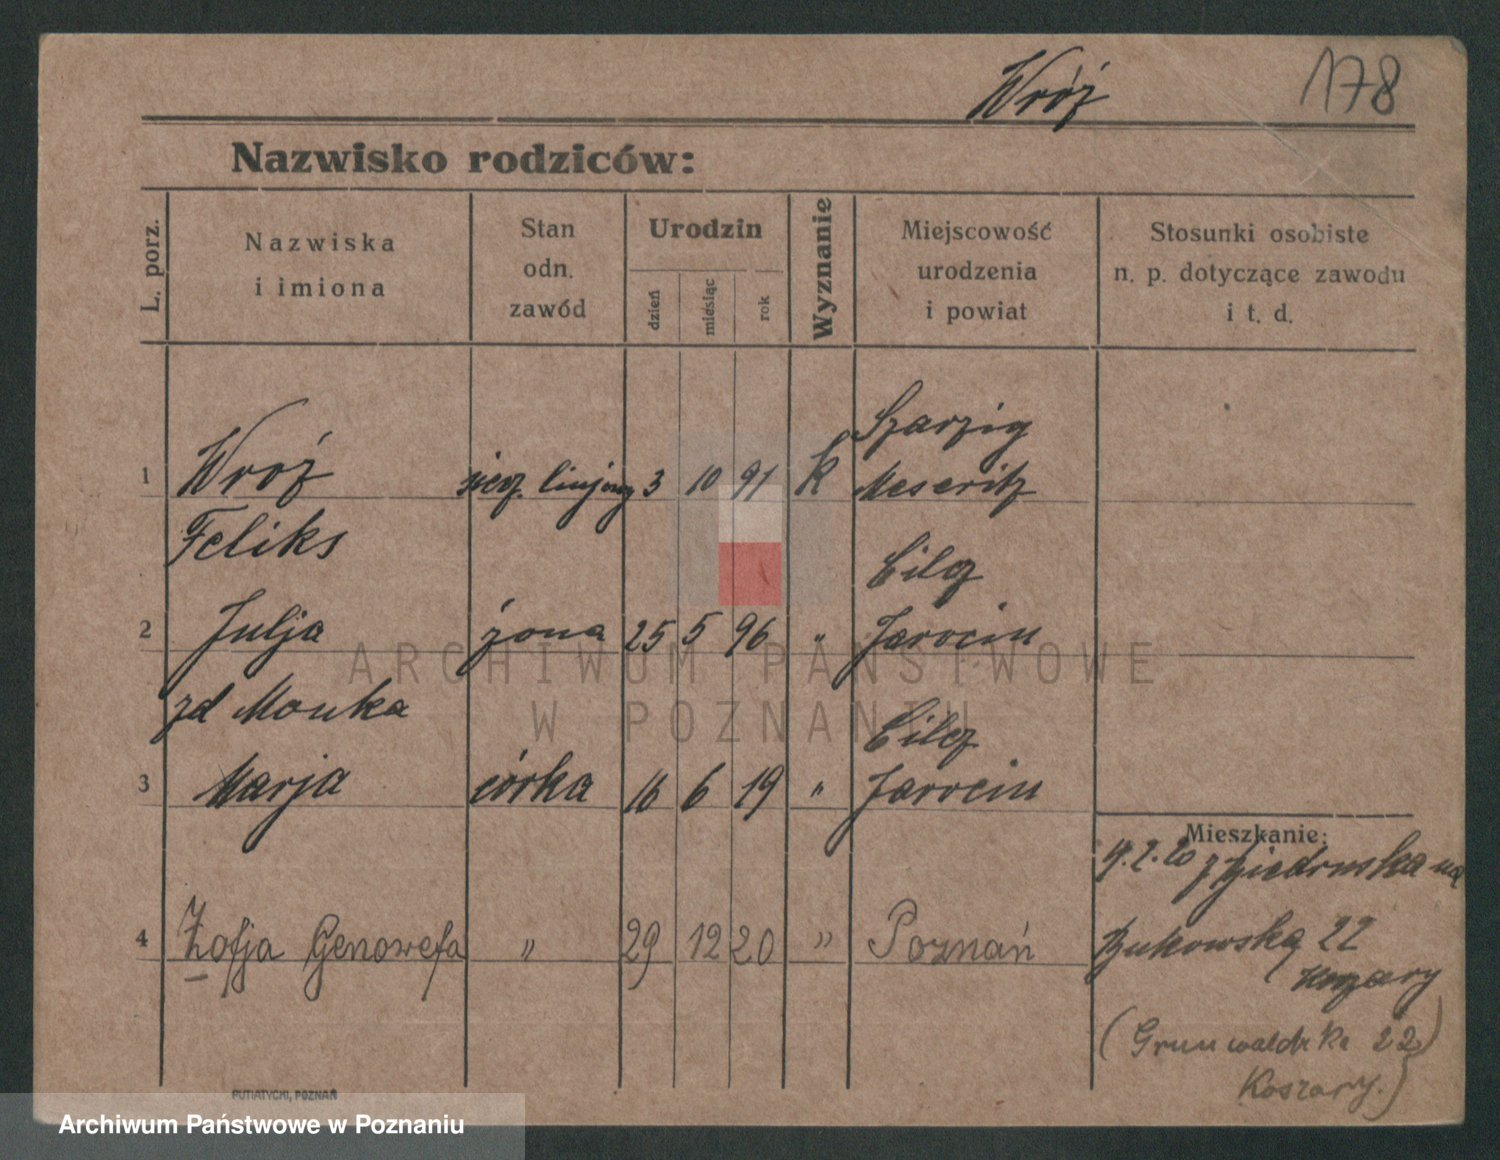 Wróż 178
Nazwisko rodziców:
L. porz.
Nazwiska
i imiona
Stan
odn.
zawód
Urodzin
dzień
miesiąc
rok
Wyznanie
Miejscowość
urodzenia
i powiat
Stosunki osobiste
n. p. dotyczące zawodu
i t. d.
Szarzig
1 Wróż 3 10 91 k Meseritz
Feliks
Cilcz
2 Julja żona 25 5 96 " Jarocin
zd Monka
Cilcz
3 Marja córka 16 6 19 " Jarocin
Mieszkanie:
z Biedruska na
4 Zofja Genowefa " 29 12 20 " Poznań
Bukowską 22
(Grunwaldzka 22)
Koszary.)
PUTIATYCKI, POZNAŃ
ARCHIWUM PAŃSTWOWE
W POZNANIU
Archiwum Państwowe w Poznaniu